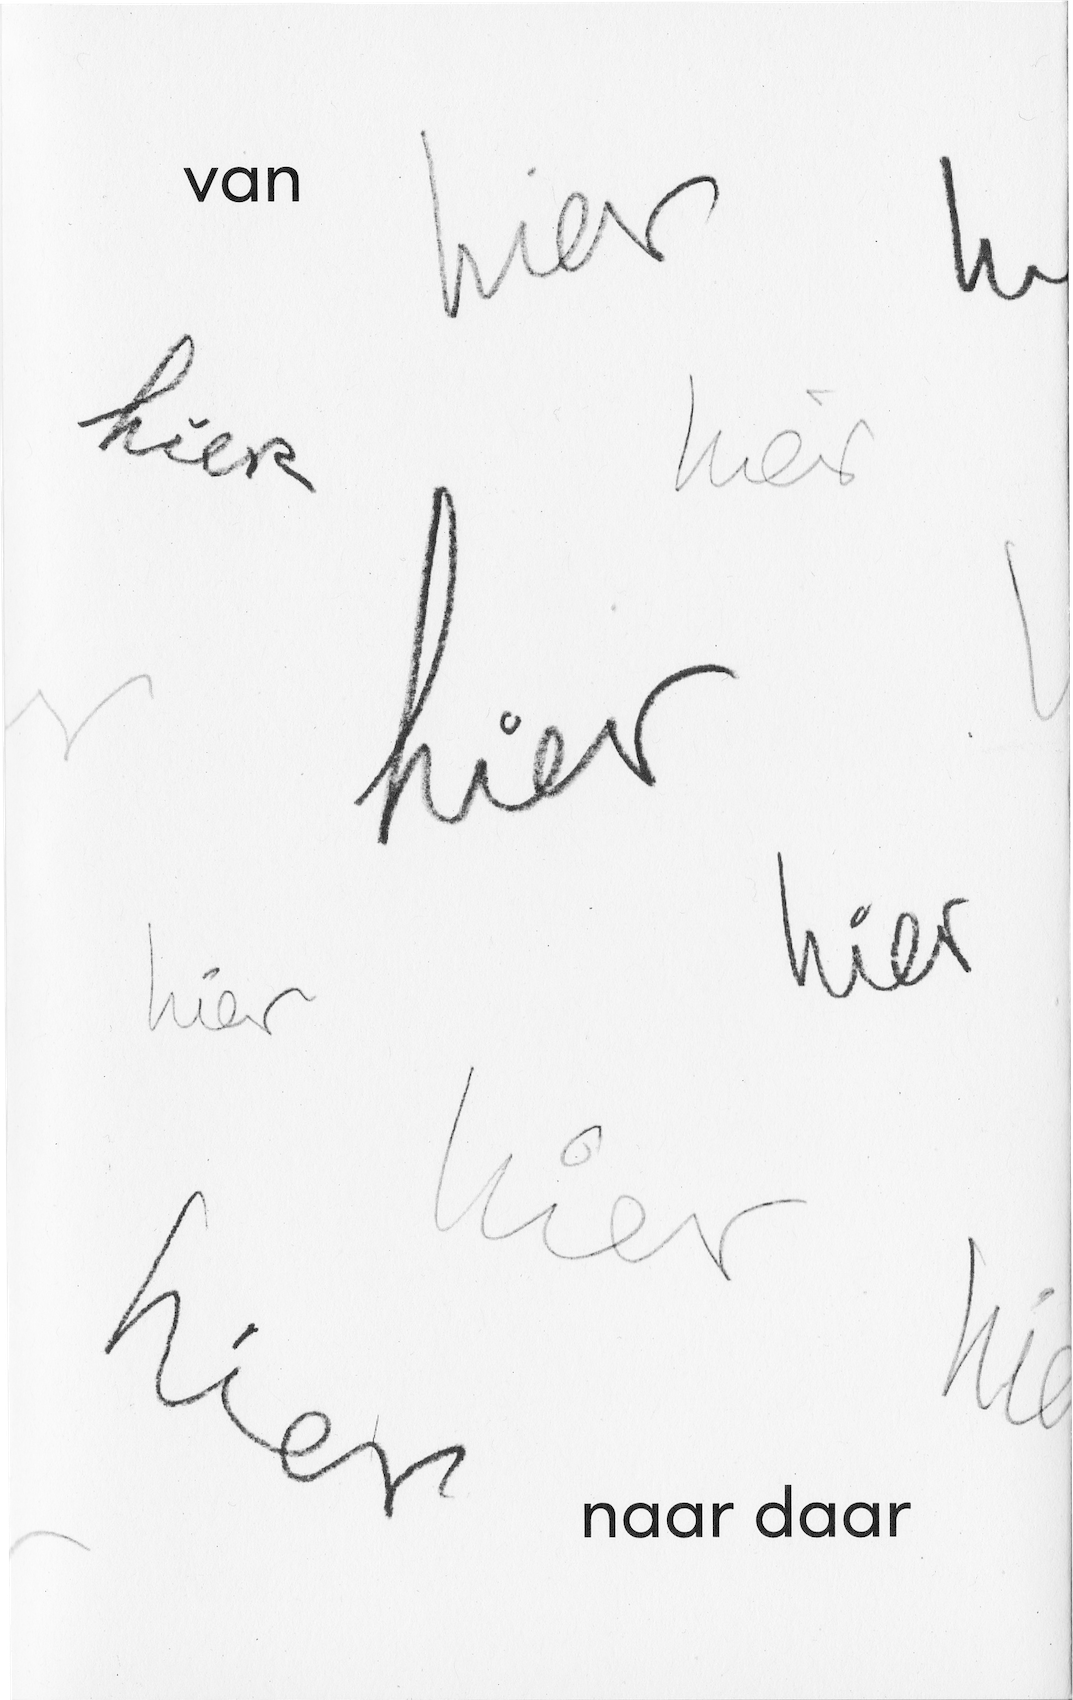 van
hier
hi
hier
hier
hier
hier
hier
hier
hier
hie
naar daar